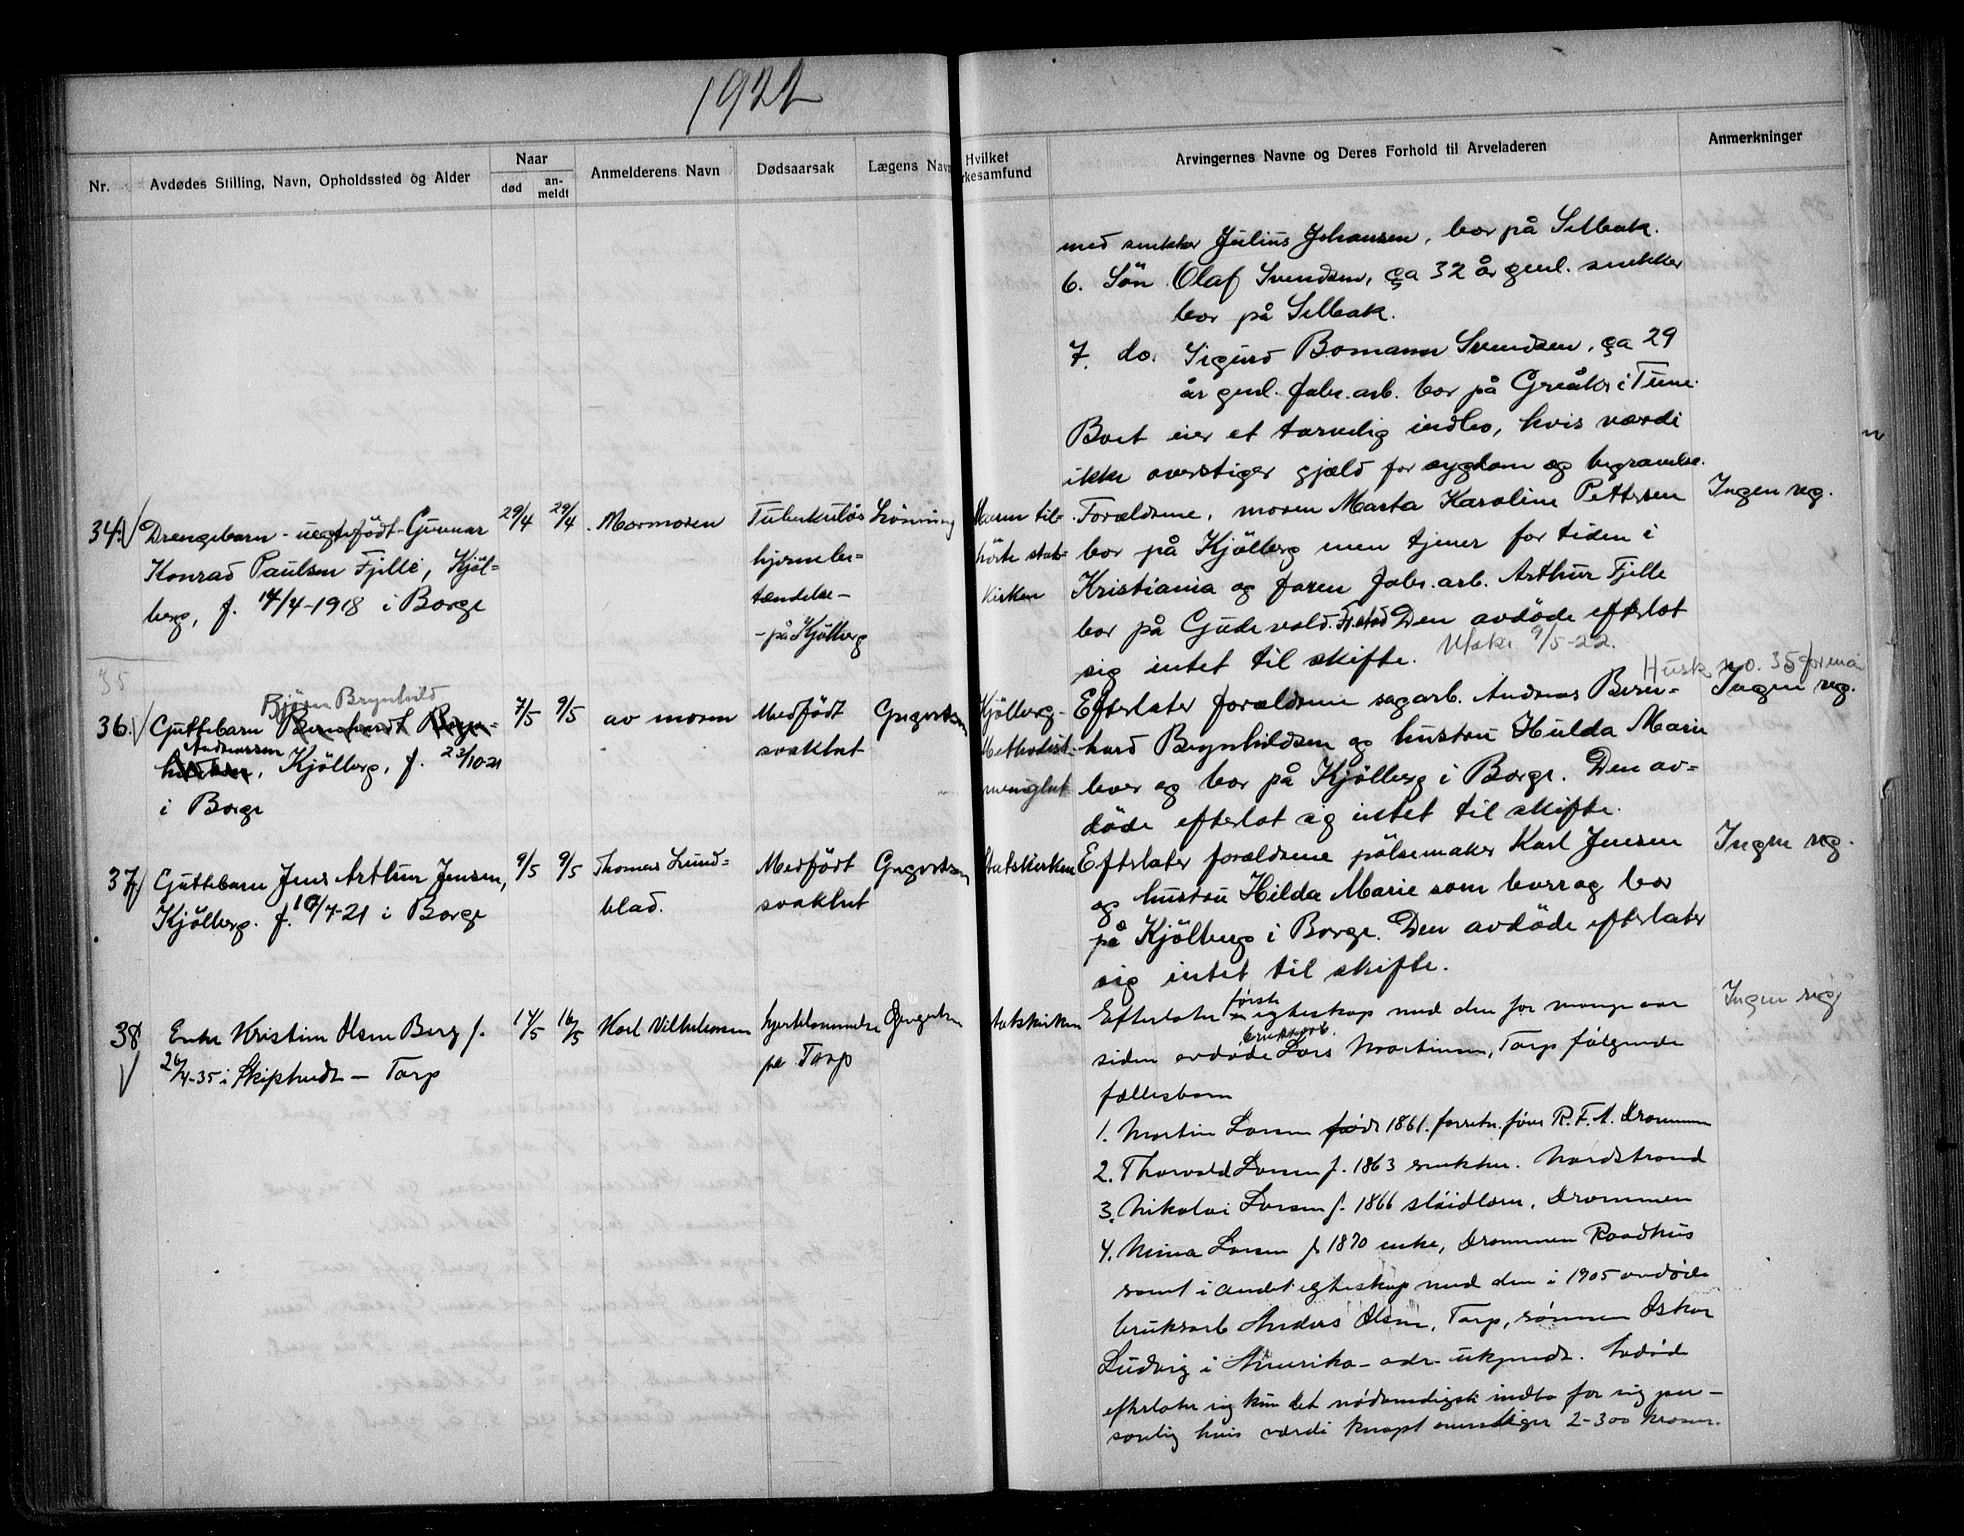 1922
Nr.
Avdødes Stilling, Navn, Opholdssted og Alder
Naar
død
an-
meldt
Anmelderens Navn
Dødsaarsak
Lægens Navn
Hvilket
rkesamfund
Arvingernes Navne og Deres Forhold til Arveladeren
Anmerkninger
med snekker Julius Johansen, bor på Selbak.
6. Søn Olaf Svendsen, ca 32 år gml. snekker
bor på Selbak.
7. do. Sigurd Bomann Svendsen, ca 29
år gml. fabr. arb. bor på Greåker i Tune.
Boet eier et tarvelig indbo, hvis værdi
ikke overstiger gjæld for sygdom og begravelse.
34.
Drengebarn - uegtefødt - Gunnar
Konrad Paulsen Fjelle, Kjøl=
berg, f. 14/4-1918 i Borge
29/4
29/4
Mormoren
Tuberkuløs
hjernebe=
tændelse -
- på Kjølberg
Lønning
Moren til-
hörte stats-
kirken
Forældrene, moren Marta Karoline Pettersen
bor på Kjølberg men tjener for tiden i
Kristiania og faren fabr. arb. Arthur Fjelle
bor på Gudevold. Fr.stad Den avdøde efterlot
sig intet til skifte. 9/5-22.
Ingen reg.
35
Husk no. 35 for mai
36.
Bjørn Brynhild
Guttebarn Bernhardt Bryn=
Andreassen
hildsen, Kjølberg, f. 23/10-21
i Borge
7/5
9/5
av moren
Medfødt
svakhet
Gregertsen
Kjølberg-
Methodist-
menighet
Efterlater forældrene sagarb. Andreas Bern=
hard Brynhildsen og hustru Hulda Marie
lever og bor på Kjølberg i Borge. Den av=
døde efterlot sig intet til skifte.
Ingen reg.
37
Guttebarn Jens Arthur Jensen,
Kjølberg. f. 10/4-21 i Borge
9/5
9/5
Thomas Lund=
blad.
Medfødt
svakhet
Gregertsen
Statskirken
Efterlater forældrene pølsemaker Karl Jensen
og hustru Hilda Marie som lever og bor
på Kjølberg i Borge. Den avdøde efterlater
sig intet til skifte.
Ingen reg.
38
Enke Kristine Olsen Berg f.
26/4-35 i Skiptvedt - Torp
14/5
16/5
Karl Vilhelmsen
hjertelammelse
på Torp
Gregertsen
Statskirken
Efterlater i første egteskap med den for mange aar
siden avdøde bruksarb. Lars Martinsen, Torp følgende
fællesbarn
1. Martin Larsen født 1861. forretn. fører R.F.A. Drammen
2. Thorvald Larsen f. 1863 snekker. Nordstrand
3. Nikolai Larsen f. 1866 sløidlærer, Drammen
4. Mina Larsen f 1870 enke, Drammen Raadhus
samt i andet egteskap med den i 1905 avdøde
bruksarb Anders Olsen, Torp, sønnen Oskar
Ludvig i Amerika - adr. ukjendt. Avdøde
efterlater sig kun det nødvendigste indbo for sig per-
sonlig hvis værdi knapt overstiger 2-300 kroner.
Ingen reg.